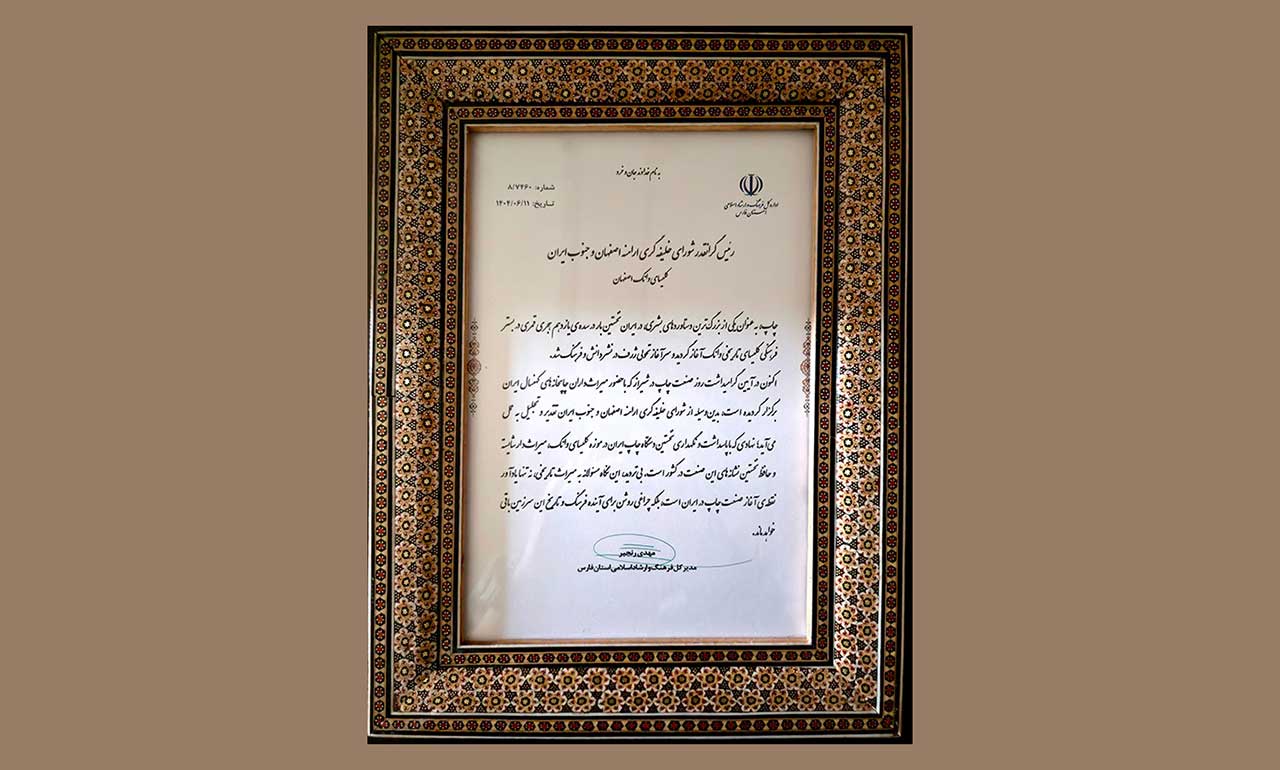 به نام خداوند جان و خرد
اداره کل فرهنگ و ارشاد اسلامی
استان فارس
شماره: ۸/۷۴۶۰
تاریخ: ۱۴۰۴/۰۶/۱۱
رئیس گرانقدر شورای خلیفه گری ارامنه اصفهان و جنوب ایران
کلیسای وانک اصفهان
چاپ، به عنوان یکی از بزرگ ترین دستاوردهای بشری، در ایران نخستین بار در سده ی یازدهم هجری قمری در بستر
فرهنگی کلیسای تاریخی وانک آغاز گردید و سرآغاز تحولی ژرف در نشر دانش و فرهنگ شد.
اکنون در آیین گرامیداشت روز صنعت چاپ در شیراز که با حضور میراث داران چاپخانه های کهنسال ایران
برگزار گردیده است، بدین وسیله از شورای خلیفه گری ارامنه اصفهان و جنوب ایران تقدیر و تجلیل به عمل
می آید؛ نهادی که با پاسداشت و نگهداری نخستین دستگاه چاپ ایران در موزه کلیسای وانک، میراث دار شایسته
و حافظ نخستین نشانه های این صنعت در کشور است. بی تردید، این نگاه مسئولانه به میراث تاریخی، نه تنها یادآور
نقطه ی آغاز صنعت چاپ در ایران است، بلکه چراغی روشن برای آینده فرهنگ و تاریخ این سرزمین باقی
خواهد ماند.
مهدی رنجبر
مدیر کل فرهنگ و ارشاد اسلامی استان فارس